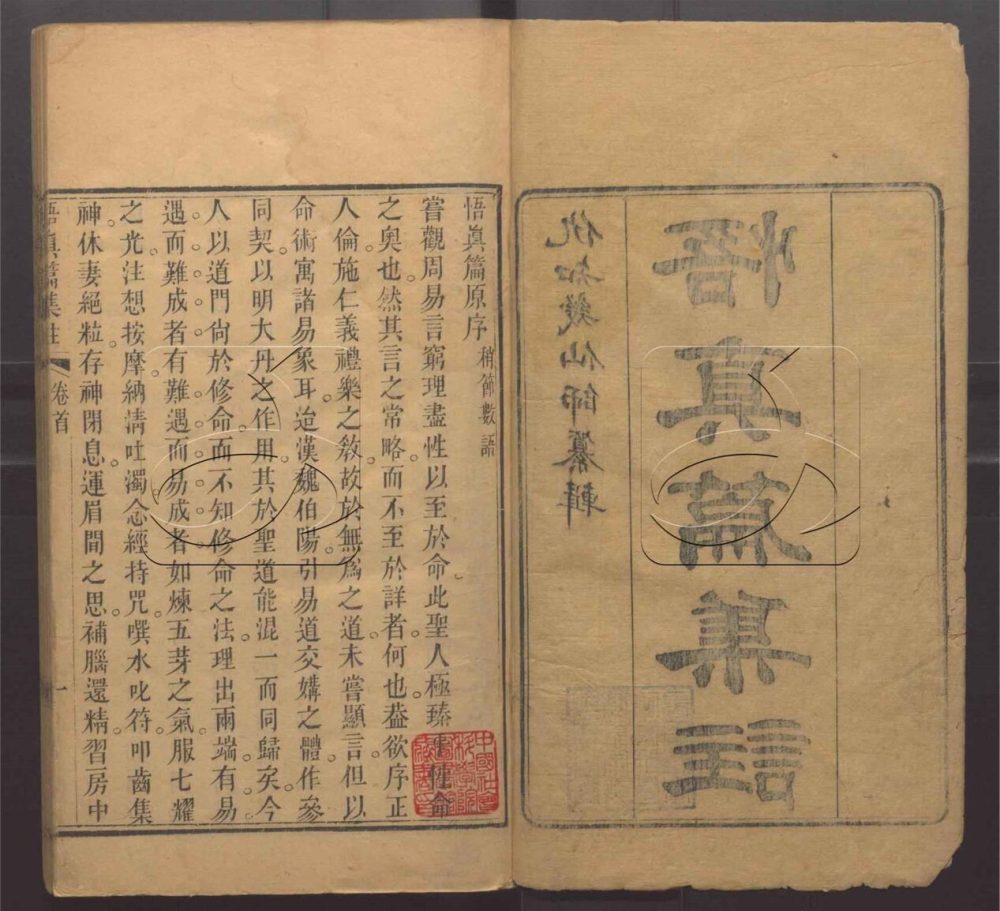 悟真篇集註
仇知幾仙師纂輯
悟眞篇原序 稍節數語
嘗觀周易言窮理盡性以至於命此聖人極臻乎性命
之奧也然其言之常略而不至於詳者何也葢欲序正
人倫施仁義禮樂之敎故於無爲之道未嘗顯言但以
命術寓諸易象耳迨漢魏伯陽引易道交媾之體作參
同契以明大丹之作用其於聖道能混一而同歸矣今
人以道門尙於修命而不知修命之法理出兩端有易
遇而難成者有難遇而易成者如煉五芽之氣服七耀
之光注想按摩納淸吐濁念經持咒噀水叱符叩齒集
神休妻絕粒存神閉息運眉間之思補腦還精習房中
悟眞篇集註 卷首 一